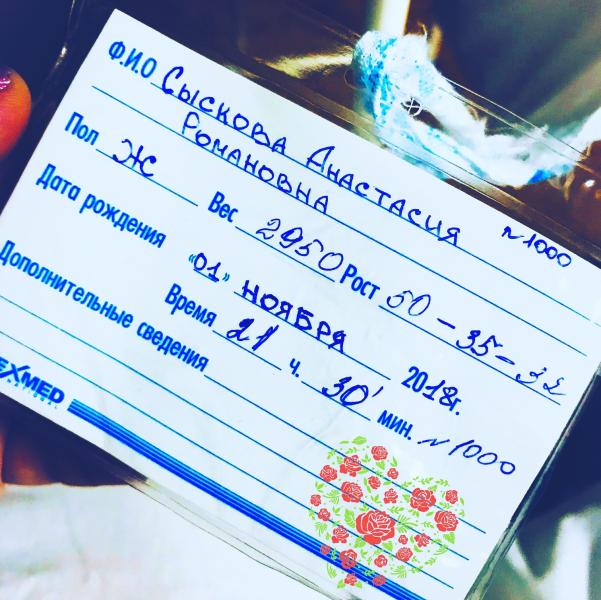 Ф.И.О Сыскова Анастасия
Романовна
№1000
Пол Ж Вес 2950 Рост 50-35-32
Дата рождения "01" ноября 2018г.
Время 21 ч. 30' мин. №1000
Дополнительные сведения
EXMED